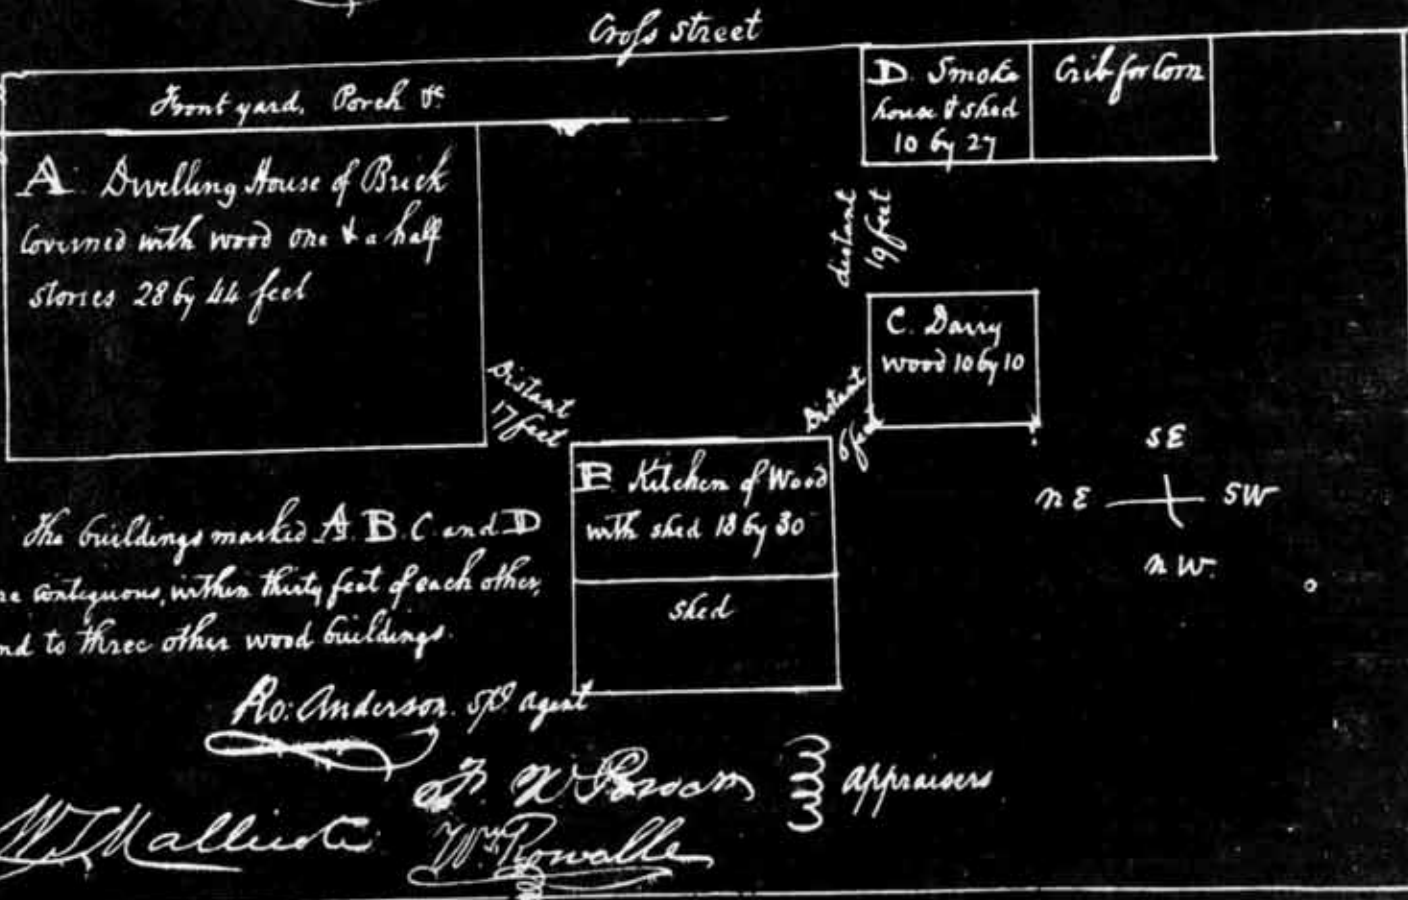 Cross street
Front yard, Porch &c
A. Dwelling House of Brick
Covered with wood one & a half
stories 28 by 44 feet
D. Smoke
house & shed
10 by 27
Crib for Corn
distant
19 feet
C. Dairy
wood 10 by 10
Distant
17 feet
Distant
6 feet
B. Kitchen of Wood
with shed 18 by 30
shed
SE
NE
SW
NW.
The buildings marked A. B. C. and D
re contiguous, within thirty feet of each other,
nd to three other wood buildings.
Ro: Anderson. spl agent
Appraisers